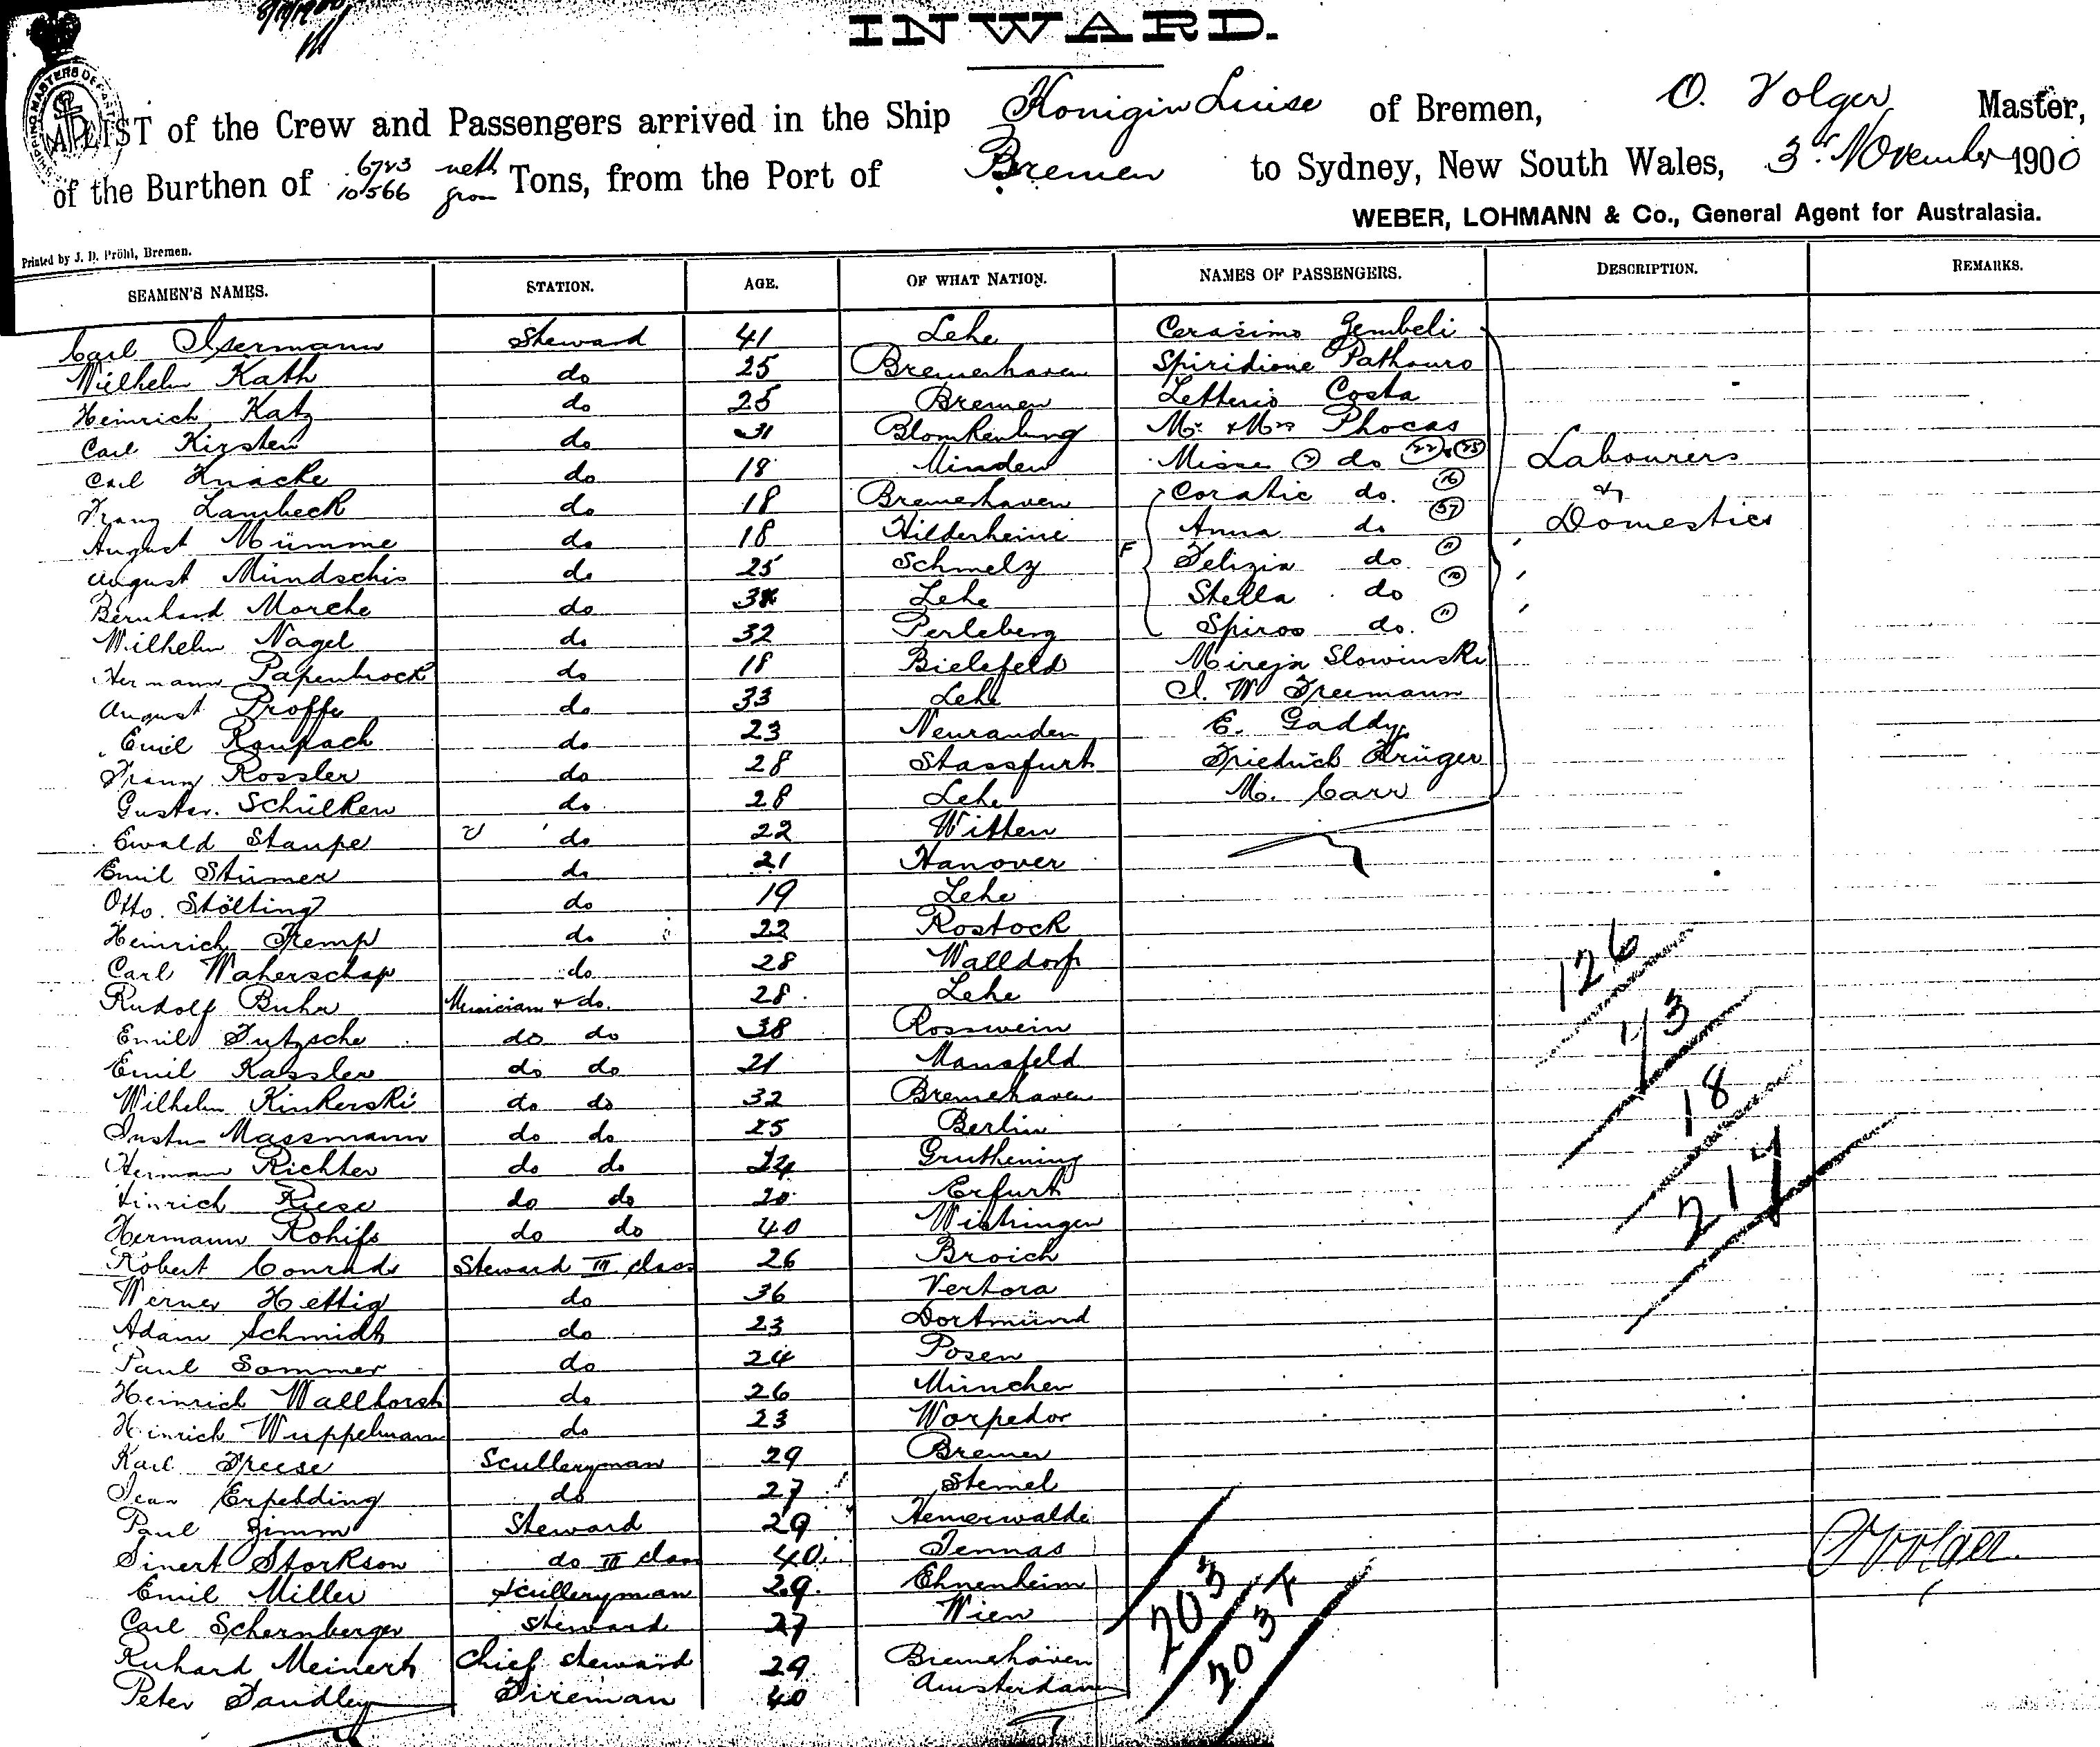 INWARD.
A LIST of the Crew and Passengers arrived in the Ship Königin Luise of Bremen, O. Volger Master,
of the Burthen of 6723 nett 10566 gross Tons, from the Port of Bremen to Sydney, New South Wales, 3rd November 1900
WEBER, LOHMANN & Co., General Agent for Australasia.
Printed by J. D. Pröhl, Bremen.
SEAMEN'S NAMES. STATION. AGE. OF WHAT NATION. NAMES OF PASSENGERS. DESCRIPTION. REMARKS.
Carl Isermann Steward 41 Lehe Cerasimo Jembeli
Wilhelm Kath do 25 Bremerhaven Spiridione Pathouro
Heinrich Katz do 25 Bremen Letterio Costa
Carl Kirsten do 31 Blomkenburg Mr. & Mrs Phocas
Carl Knacke do 18 Minden Misses 2 do 22 & 23 Labourers
Franz Lambeck do 18 Bremerhaven Coratic do. 16 &
August Mümme do 18 Hilderheime Anna do 37 Domestics
August Mündschis do 25 Schmelz F Felizia do 11
Bernhard Morche do Lehe Stella do 10
Wilhelm Nagel do 32 Perleberg Spiros do. 11
Hermann Papenbrock do 18 Bielefeld Slowinski
August Proffe do 33 Lehe J. W Freemann
Emil Raupach do 23 Neuranden E. Gaddy
Franz Rossler do 28 Stassfurt Friedrich Krüger
Gustav. Schülken do 28 Lehe M. Carr
Ewald Staupe do 22 Witten
Emil Stürmer do 21 Hanover
Otto. Stölting do 19 Lehe
Heinrich Tremp do 22 Rostock
Carl Waherschap do 28 Walldorf
Rudolf Buhr Musician & do. 28. Lehe
Emil Futzsche do do 38 Rosswein
Emil Kassler do do 21 Mansfeld
Wilhelm Kinkerski do do 32 Bremehaven
Justus Massmann do do 25 Berlin
Hermann Richter do do 24 Gruthening
Hinrich Riese do do 20 Erfurt
Hermann Rohifs do do 40 Wishingen
Robert Conrads Steward III class 26 Broich
Werner Hettig do 36 Vertora
Adam Schmidt do 23 Dortmünd
Paul Sommer do 24 Posen
Heinrich Wallhorst do 26 München
Heinrich Wuppelmann do 23 Worpedor
Karl Freese Sculleryman 29 Bremen
Jean Erpelding do 27 Stemel
Paul Zimm Steward 29 Hemerwalde
Sinert Storkson do III class 40. Jennas
Emil Miller Sculleryman 29. Ehnenheim
Carl Schernberger Steward 27 Wien
Richard Meinert Chief Steward 29 Bremehaven
Peter Tandley Fireman 40 Amsterdam
126
73
18
217
203
203